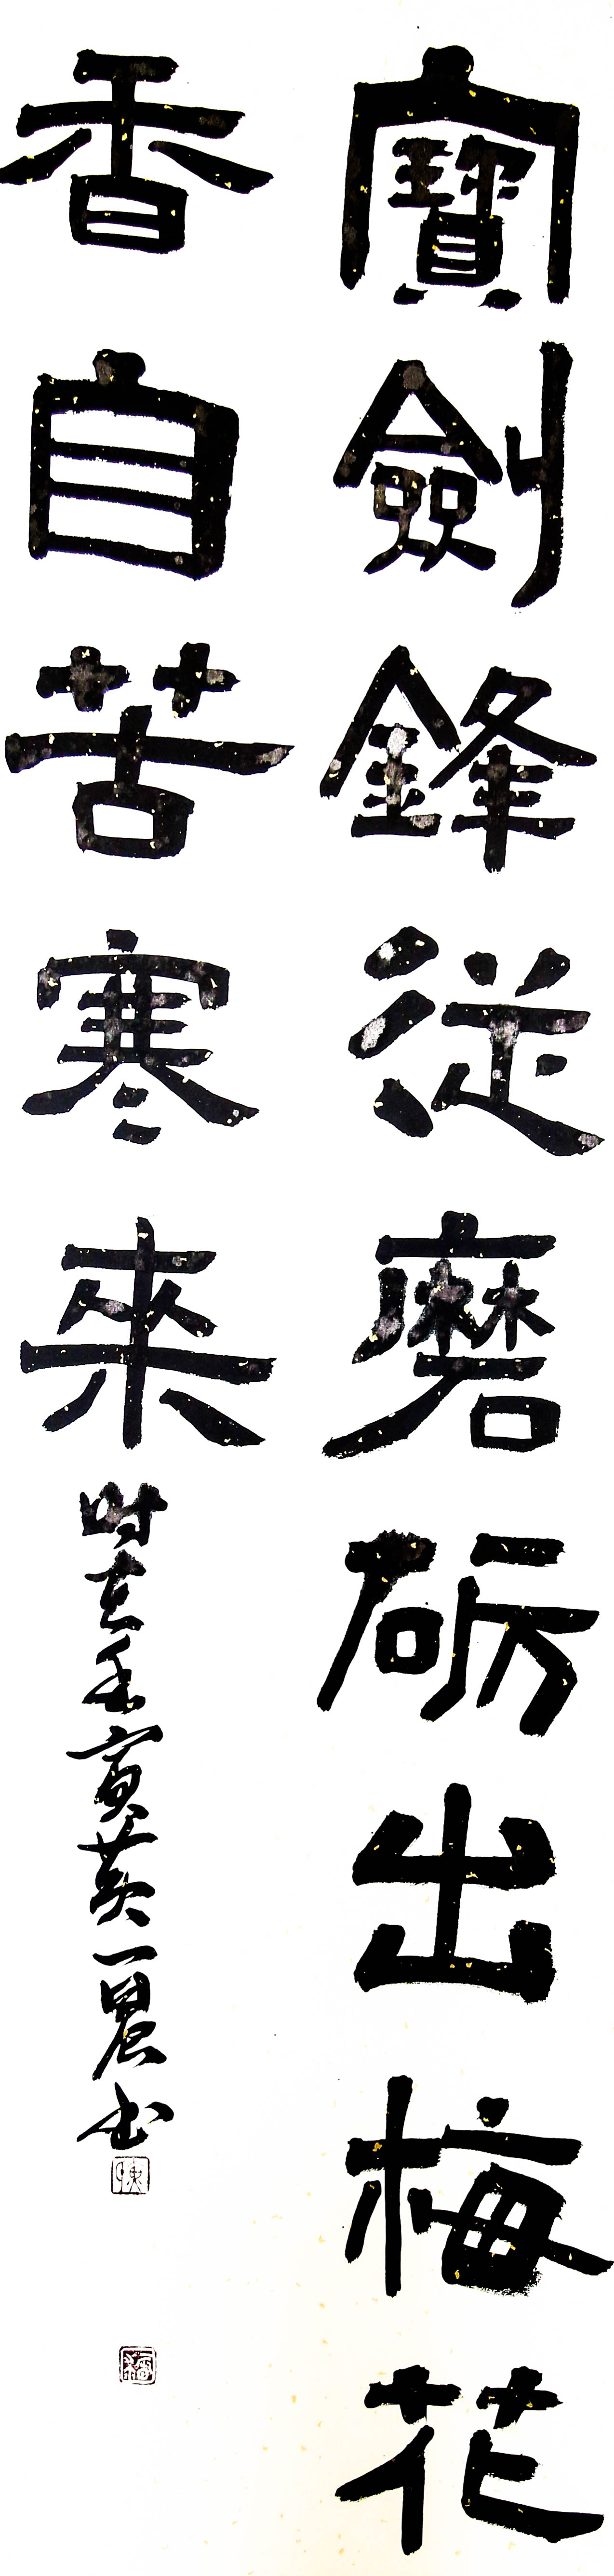 寶劍鋒從磨砺出梅花
香自苦寒來 時在壬寅黄一晨书